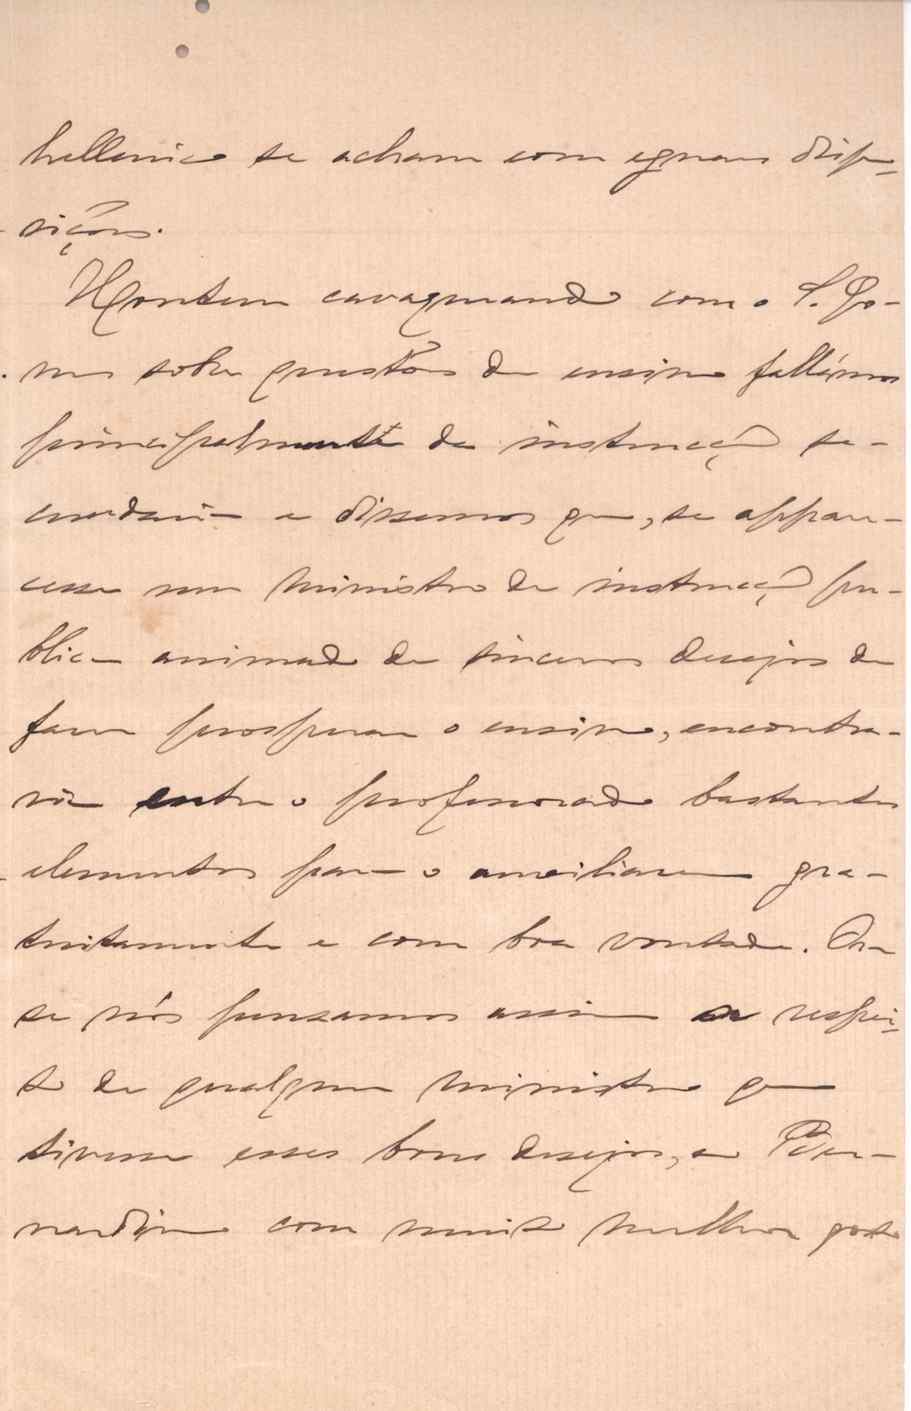 hellenico se acham com eguaes dispo-
sições.
Hontem cavaqueando com o S. Go-
mes sobre questões de ensino fallámos
principalmente de instrucção se-
cundaria e dissemos que, se appare-
cesse um ministro de instrucção pu-
blica animado de sinceros desejos de
fazer prosperar o ensino, encontra-
ria entre o professorado bastantes
elementos para o auxiliarem gra-
tuitamente e com boa vontade. Ora
se nós pensamos assim a respei-
to de qualquer ministro que
tivesse esses bons desejos, a Ber-
nardino com muito melhor gosto